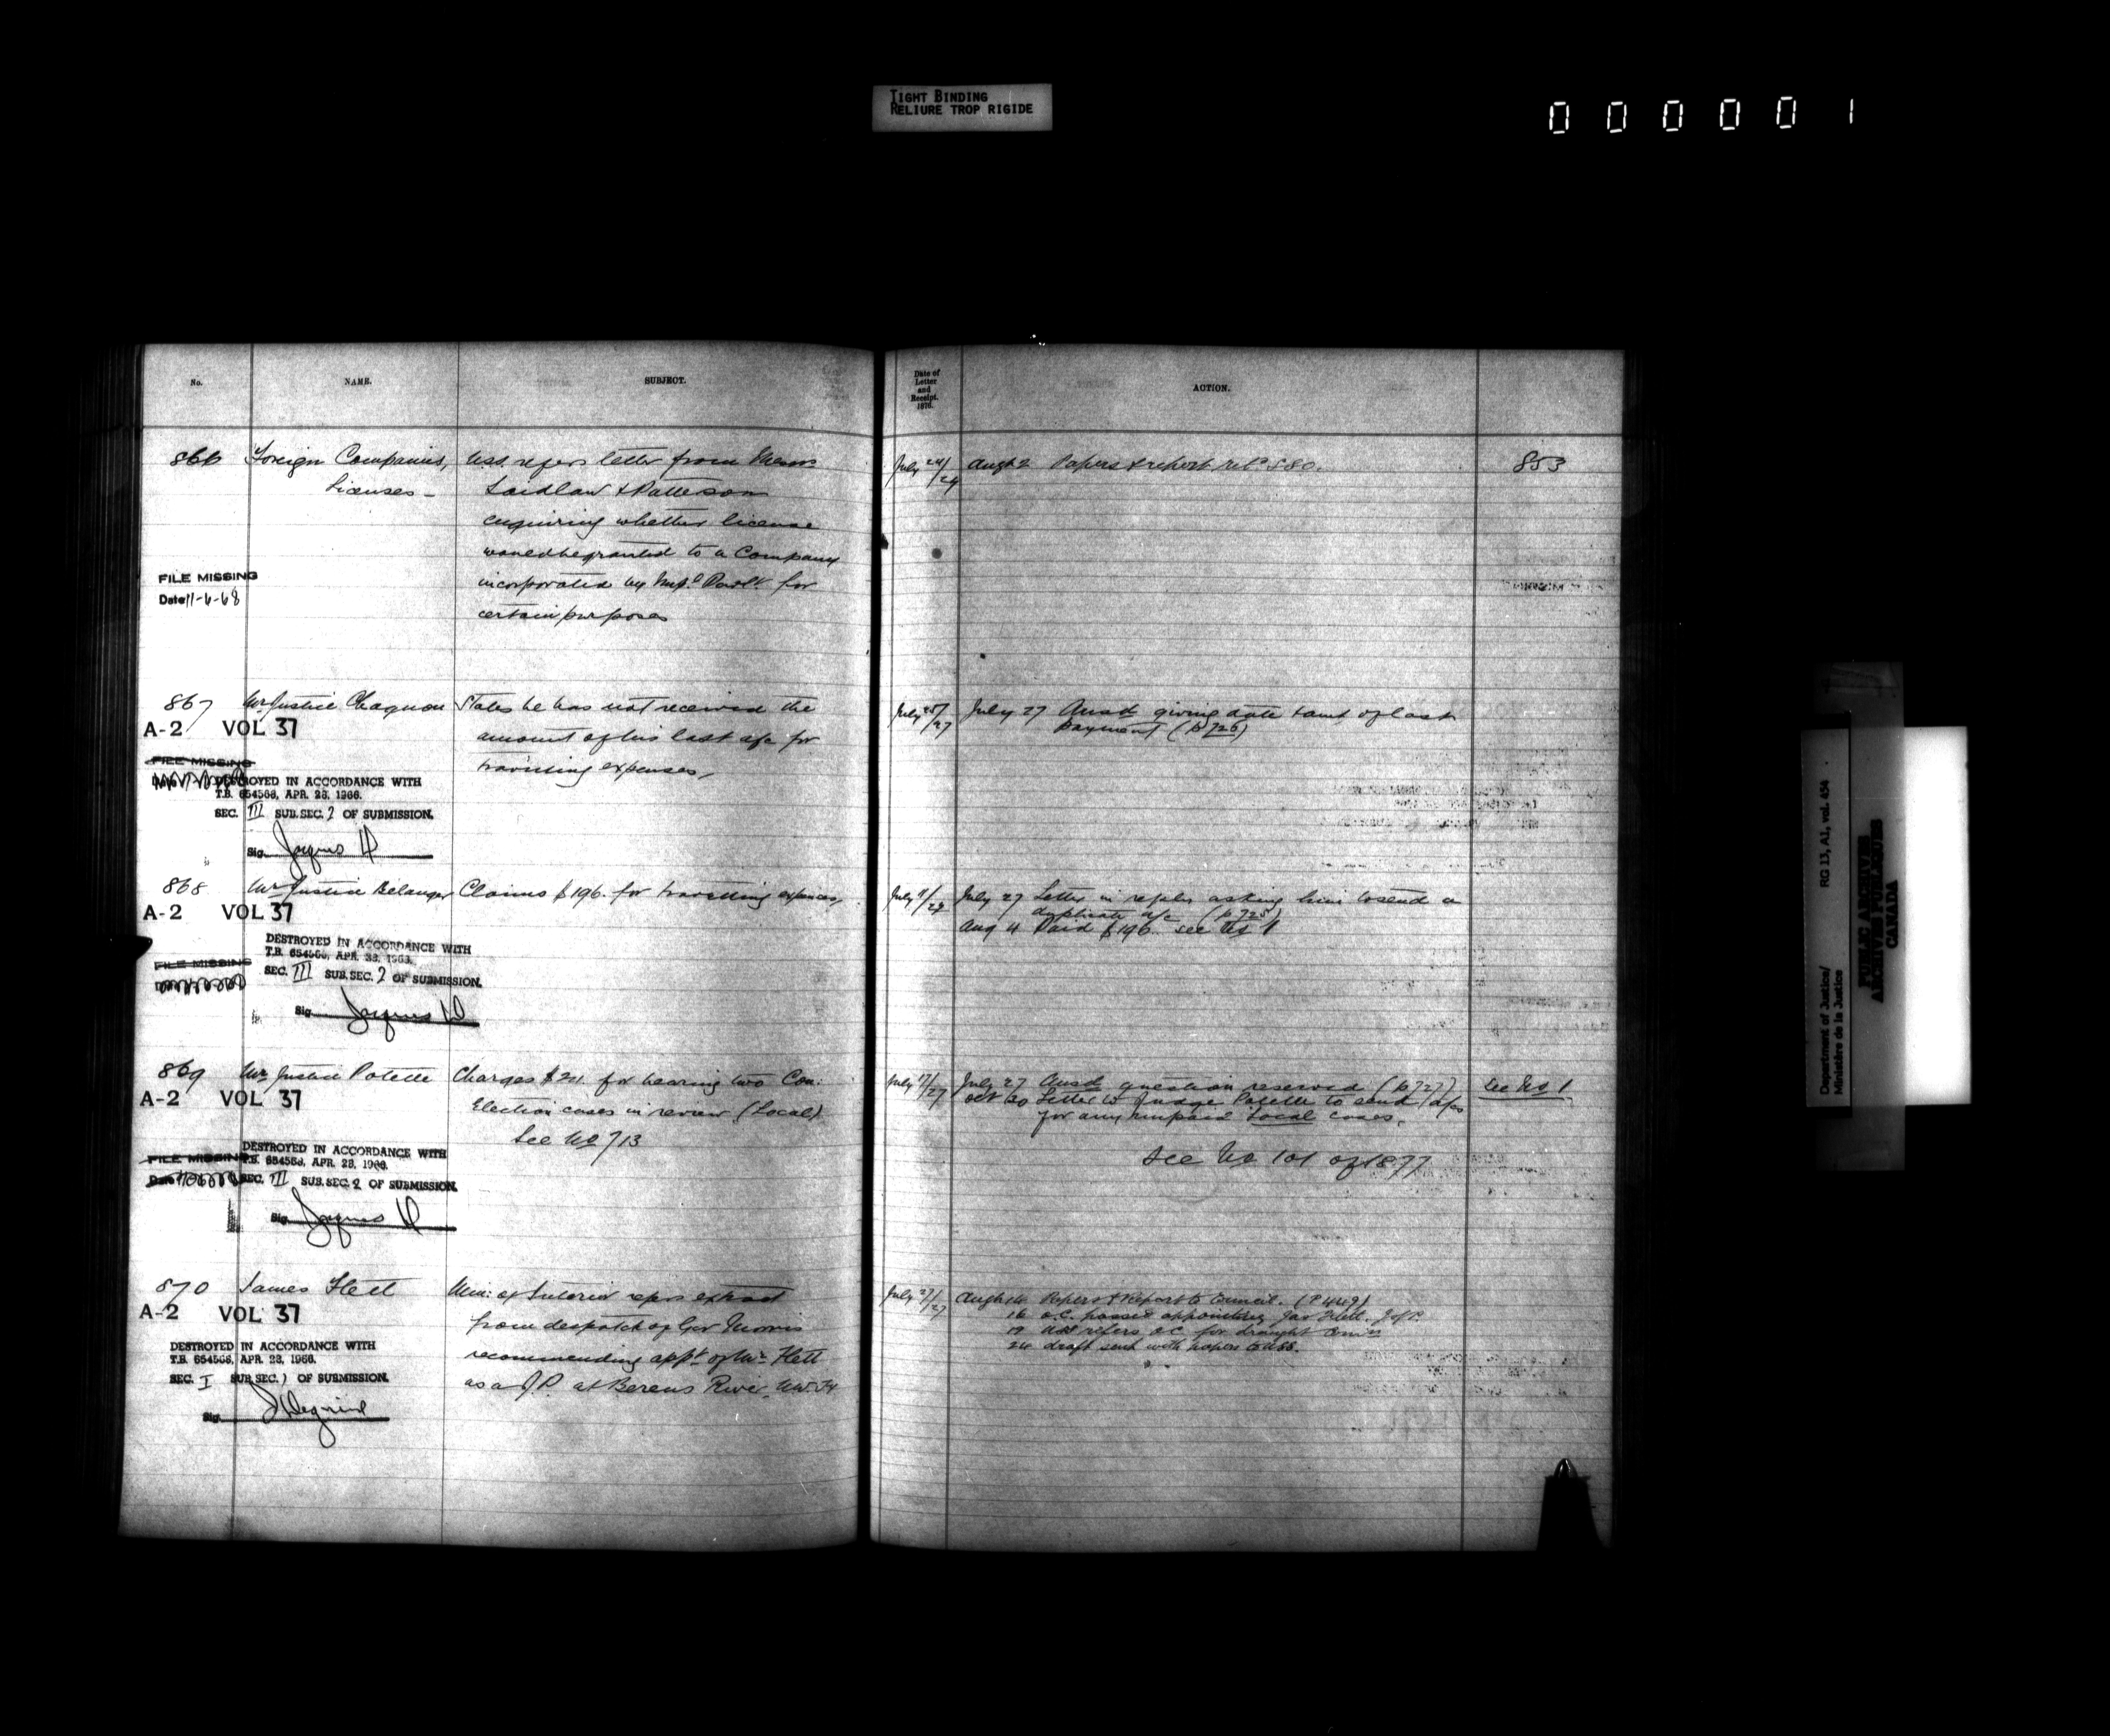 TIGHT BINDING
RELIURE TROP RIGIDE
000001
No.
NAME.
SUBJECT.
Date of
Letter
and
Receipt.
1876.
ACTION.
866 Foreign Companies, USS. refers letter from Messrs
Licenses - Laidlaw & Patterson
enquiring whether license
would be granted to a Company
incorporated by Imp.l Parlt. for
certain purposes
FILE MISSING
Date 11-6-68
July 24/29 Augt 2 Papers & report ret.d S80. 853
867 Mr Justice Chagnon States he has not received the
amount of his last a/c for
travelling expenses,
A-2 VOL 37
FILE MISSING
DESTROYED IN ACCORDANCE WITH
T.B. 654566, APR. 28, 1966.
SEC. III SUB. SEC. 2 OF SUBMISSION.
Sig. Jacques
July 25/27 July 27 Ansd giving date & amt of last
payment (p 726)
868 Mr Justice Belanger Claims $196. for travelling expenses,
A-2 VOL 37
FILE MISSING
DESTROYED IN ACCORDANCE WITH
T.B. 654566, APR. 28, 1966.
SEC. III SUB. SEC. 2 OF SUBMISSION.
Sig. Jacques
July 27 Letter in reply asking him to send a
duplicate a/c (p 725)
Aug 4 Paid $196. see No 1
869 Mr Justice Polette Charges $20. for hearing two Con:
Election cases in review (Local)
See No 713
A-2 VOL 37
FILE MISSING
DESTROYED IN ACCORDANCE WITH
T.B. 654566, APR. 28, 1966.
SEC. III SUB. SEC. 2 OF SUBMISSION.
Sig. Jacques
July 17/27 July 27 Ansd question reserved (p 727) See No 1
Oct 30 Letter to Judge Polette to send a/cs
for any unpaid Local cases.
See No 101 of 1877
870 James Flett Min: of Interior refers extract
from despatch of Gov Morris
recommending appt of Mr Flett
as a J.P. at Berens River, N.W.T
A-2 VOL 37
DESTROYED IN ACCORDANCE WITH
T.B. 654566, APR. 28, 1966.
SEC. I SUB. SEC. 1 OF SUBMISSION.
Sig.
July 27/27 Augt 14 Papers & Report to Council. (P 449)
16 O.C. passed appointing Jas Flett. J of P.
19 USS refers O.C. for draught Comn
24 draft sent with papers to USS.
Department of Justice/
Ministère de la Justice
RG 13, A1, vol. 454
PUBLIC ARCHIVES
ARCHIVES PUBLIQUES
CANADA